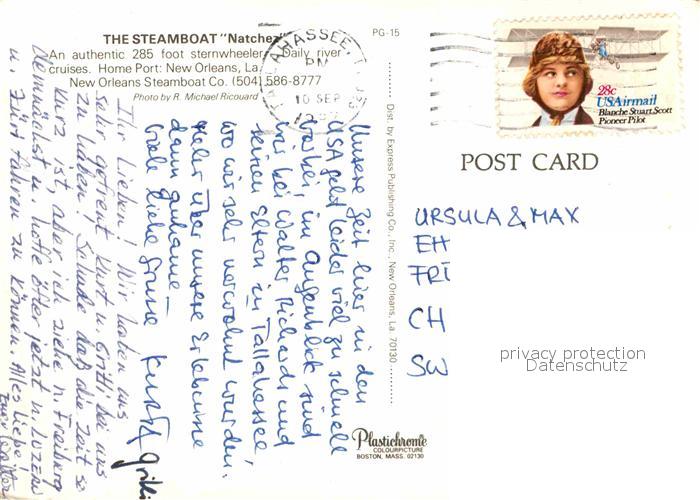 THE STEAMBOAT "Natchez"
An authentic 285 foot sternwheeler. Daily river
cruises. Home Port: New Orleans, La.
New Orleans Steamboat Co. (504) 586-8777
Photo by R. Michael Ricouard
PG-15
TALLAHASSEE,
PM
10 SEP
28c
USAirmail
Blanche Stuart Scott
Pioneer Pilot
POST CARD
Unsere Zeit hier in den
USA geht leider viel zu schnell
vorbei, im Augenblick sind
wir bei Walter Richard und
seinen Eltern in Tallahassee,
wo wir sehr verwöhnt wurden.
mehr über unsere Erlebnisse
dann zuhause -
viele liebe Grüsse Kurt &
Ihr Lieben! Wir haben uns
sehr gefreut Kurt u. bei uns
zu haben! Schade daß die Zeit so
kurz ist, aber ich ziehe n. Freiburg
demnächst u. hoffe öfter jetzt n. Luzern
u. Zürich fahren zu können. Alles Liebe!
Euer Walter
Dist. by Express Publishing Co., Inc., New Orleans, La. 70130
URSULA & MAX
EH
FRI
CH
SW
privacy protection
Datenschutz
Plastichrome
COLOURPICTURE
BOSTON, MASS. 02130